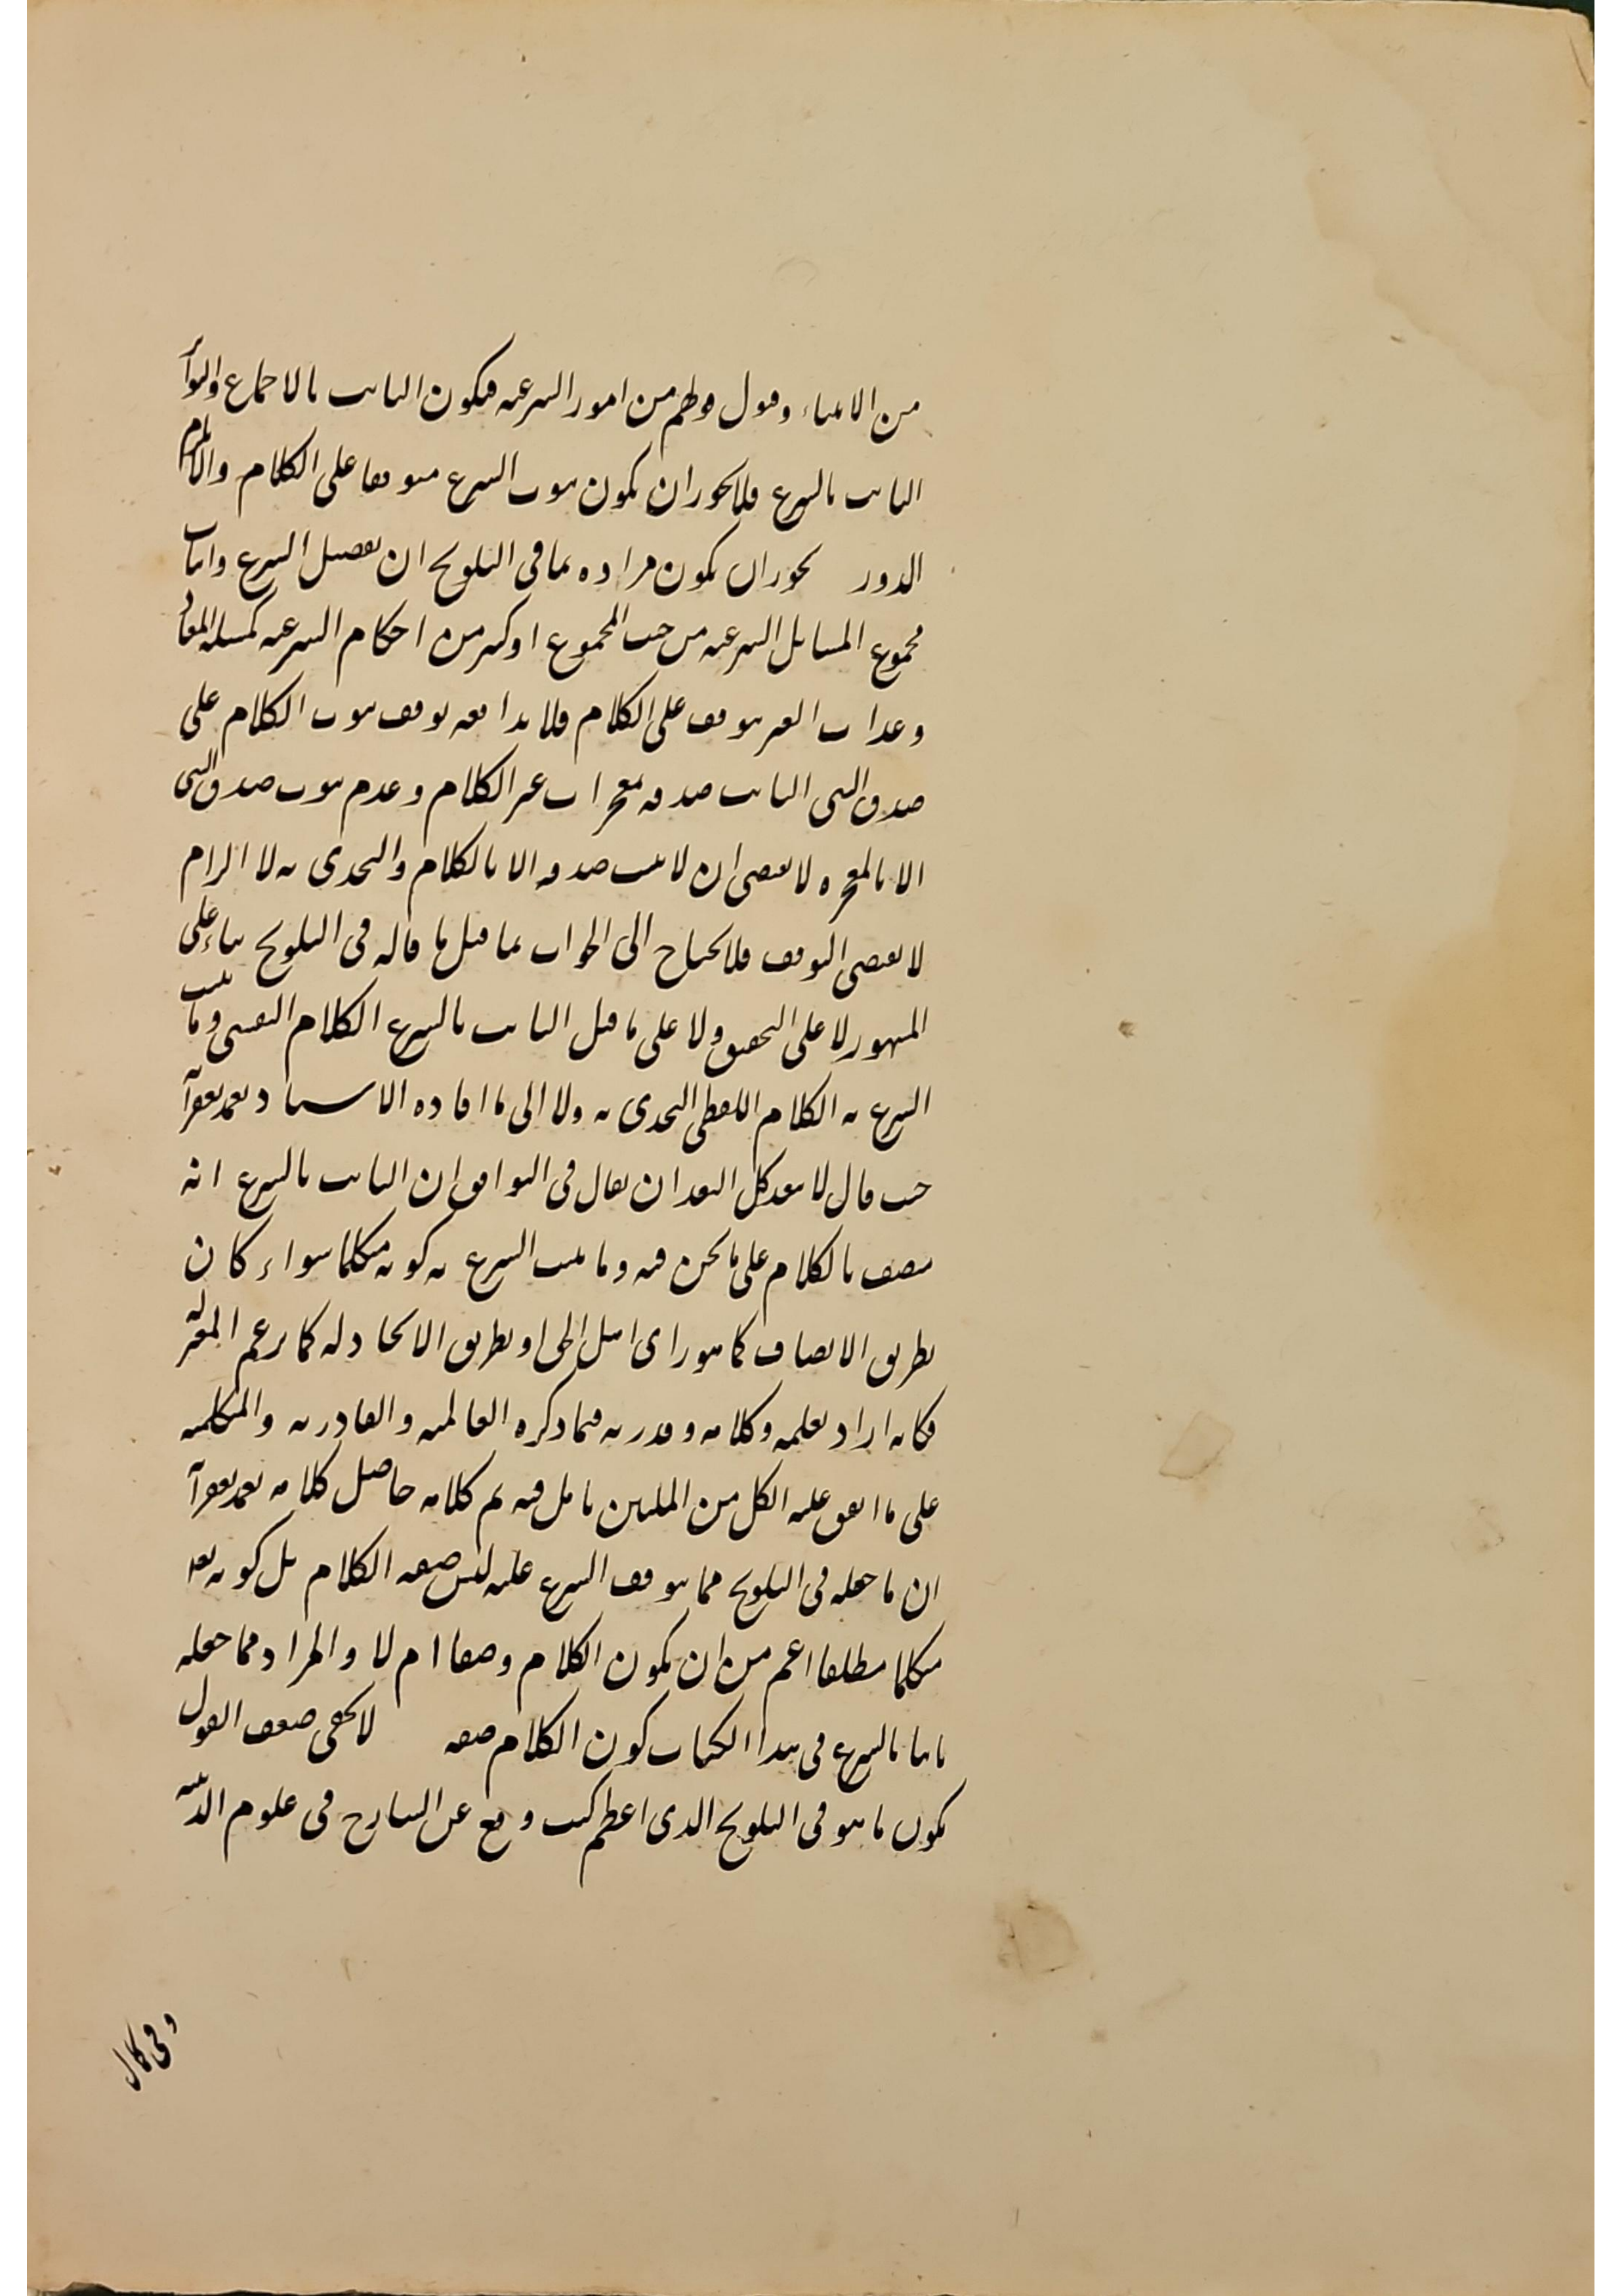 من الانبياء وقبول قولهم من امور الشرعية فيكون الثابت بالاجماع والتواتر
الثابت بالشرع فلا يجوز ان يكون ثبوت الشرع متوقفا على الكلام والا يلزم
الدور يجوز ان يكون مراده بما فى التلويح ان تفصيل الشرع واثبات
مجموع المسايل الشرعية من حيث المجموع او كثير من احكام الشرعية كمسئلة المعاد
وعذاب القبر يتوقف على الكلام فلا يدافعه توقف ثبوت الكلام على
صدق النبى الثابت صدقه بمعجزات غير الكلام وعدم ثبوت صدق النبى
الا بالمعجزه لا يقتضى ان لا يثبت صدقه الا بالكلام والتحدى به لا الزام
لا يقتضى التوقف فلا يحتاج الى الجواب بما قيل ما قاله فى التلويح بناء على
المشهور لا على التحقيق ولا على ما قيل الثابت بالشرع الكلام النفسى وما يثبت
الشرع به الكلام اللفظى التحدى به ولا الى ما افاده الاستاد تغمد بغفرانه
حيث قال لا يبعد كل البعد ان يقال فى التوافق ان الثابت بالشرع انه
متصف بالكلام على ما نحن فيه وما يثبت الشرع به كونه متكلما سواء كان
بطريق الاتصاف كما هو راى اهل الحق او بطريق الايجاد له كما يزعم المعتزلة
فكانه اراد بعلمه وكلامه وقدرته فيما ذكره العالمية والقادرية والمتكلمية
على ما اتفق عليه الكل من المليين تامل فيه تم كلامه حاصل كلامه تغمد بغفرانه
ان ما جعله فى التلويح مما يتوقف الشرع عليه ليس صفة الكلام بل كونه تعالى
متكلما مطلقا اعم من ان يكون الكلام وصفا ام لا والمراد مما جعله
ثابتا بالشرع فى هذا الكتاب كون الكلام صفة لا يخفى ضعف القول
بكون ما هو فى التلويح الذى اعظم كتب وقع عن الشارح فى علوم الدينية
وفى كمال